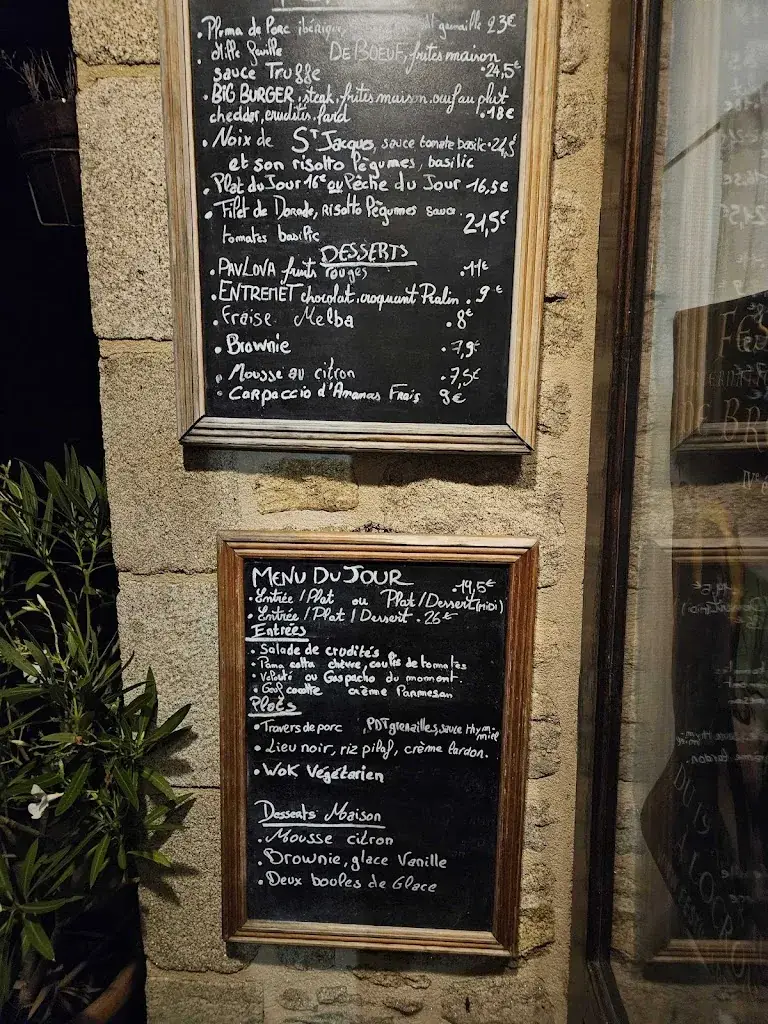 • Pluma de Porc ibérique, grenaille 23€
• Mille feuille DE BOEUF, frites maison
sauce Truffe • 24,5€
• BIG BURGER, steak, frites maison, oeuf au plat
chedder, crudités, lard • 18€
• Noix de St Jacques, sauce tomate basilic • 24,5€
et son risotto légumes, basilic
• Plat du Jour 16€ ou Pêche du Jour 16,5€
• Filet de Dorade, Risotto légumes sauce
tomates basilic 21,5€
DESSERTS
• PAVLOVA fruits rouges • 11€
• ENTREMET chocolat, croquant Pralin • 9€
• Fraise Melba • 8€
• Brownie • 7,9€
• Mousse au citron • 7,5€
• Carpaccio d'Ananas Frais 9€
MENU DU JOUR • 19,5€
• Entrée / Plat ou Plat / Dessert (midi)
• Entrée / Plat / Dessert • 26€
Entrées
• Salade de crudités
• Pana cotta chèvre, coulis de tomates
• Velouté ou Gaspacho du moment
• Oeuf cocotte crème Parmesan
Plats
• Travers de porc, PDT grenailles, sauce thym miel
• Lieu noir, riz pilaf, crème lardon.
• Wok Végétarien
Desserts Maison
• Mousse citron
• Brownie, glace Vanille
• Deux boules de Glace